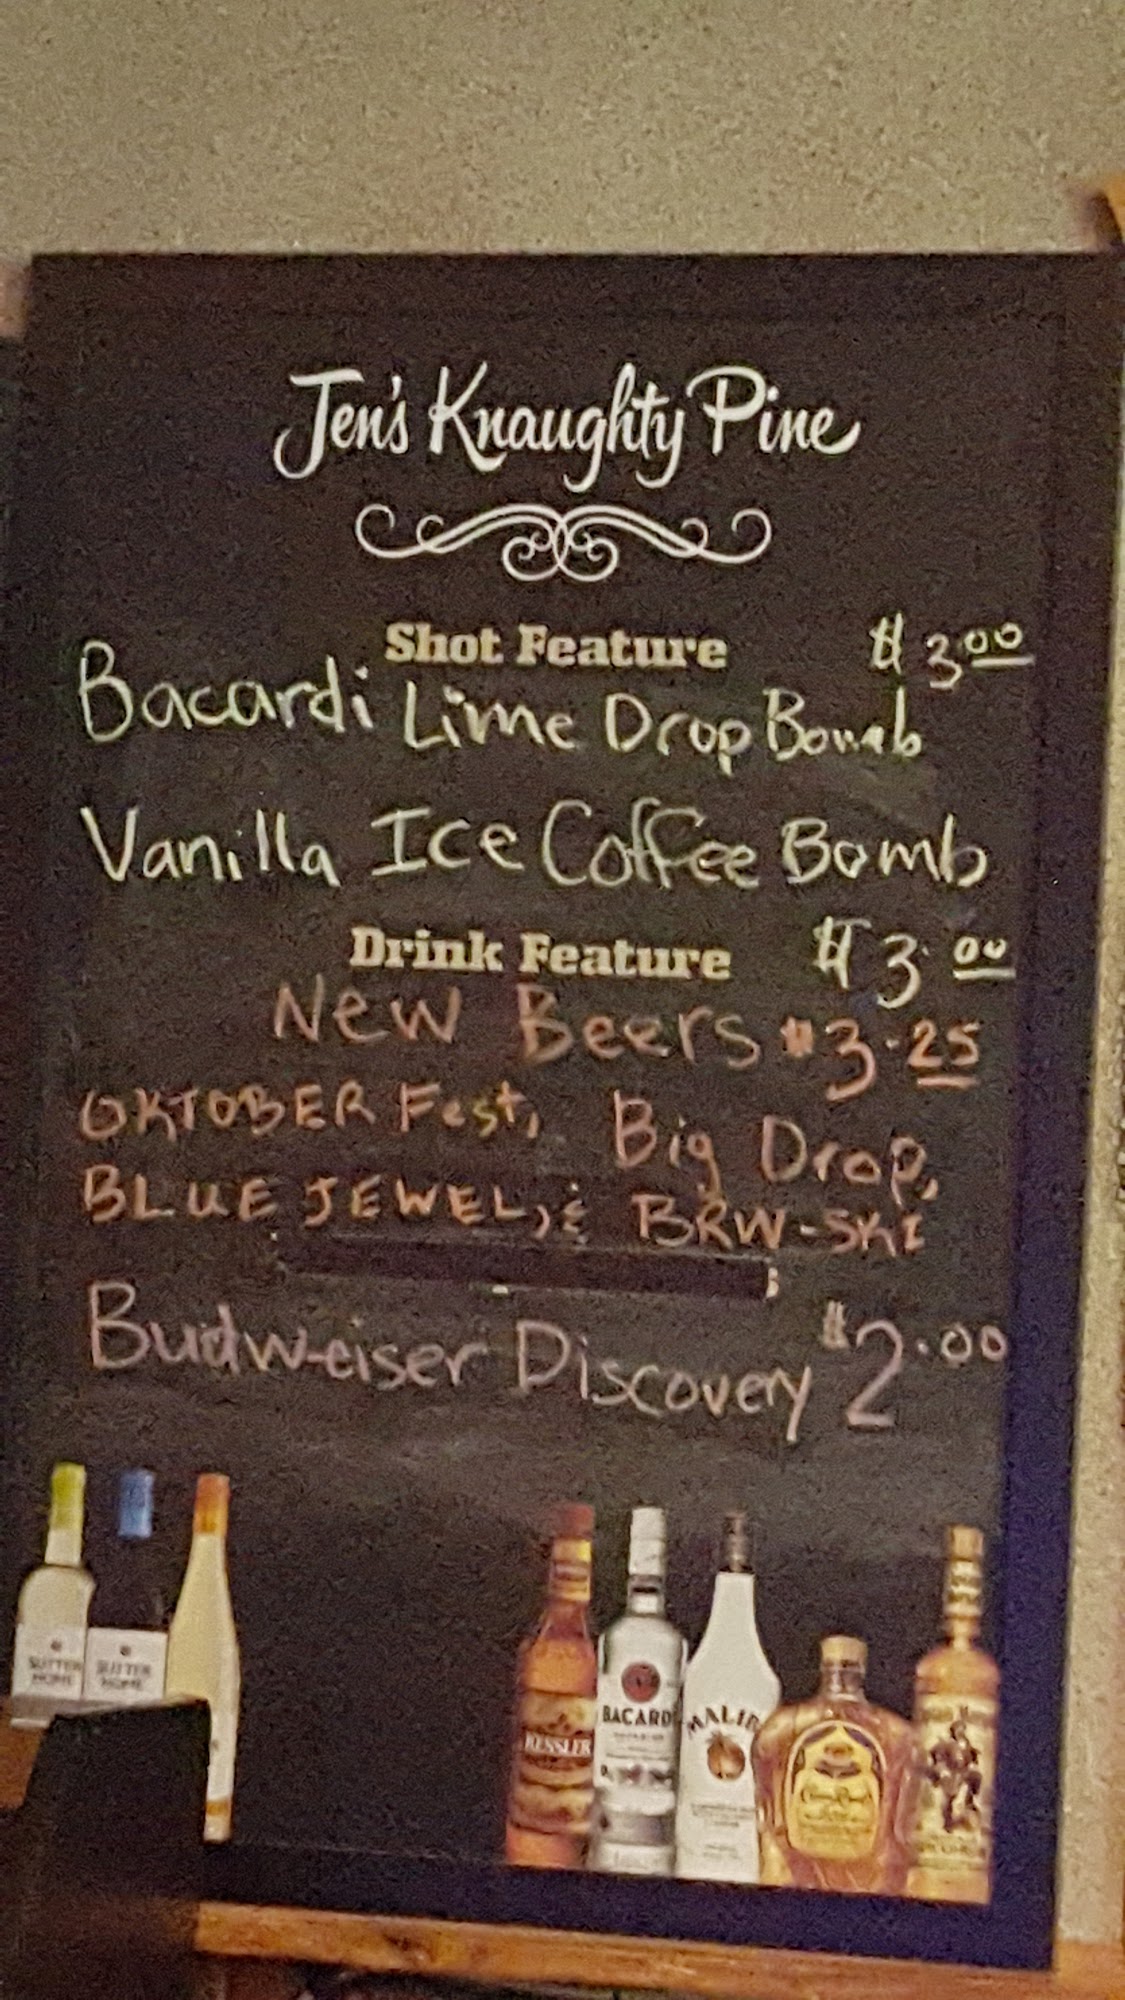 Jen's Knaughty Pine
Shot Feature $3.00
Bacardi Lime Drop Bomb
Vanilla Ice Coffee Bomb
Drink Feature $3.00
New Beers $3.25
OKTOBER Fest, Big Drop,
BLUE JEWEL, & BRW-SKI
Budweiser Discovery $2.00
SUTTER HOME
SUTTER HOME
KESSLER
BACARDI
MALIB
Crown Royal